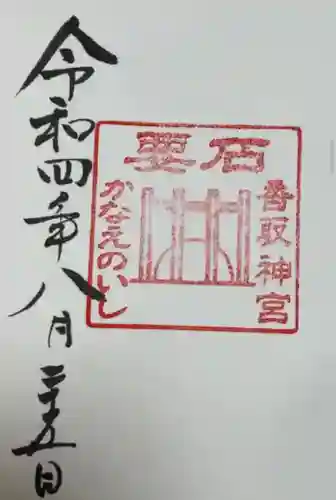 香取神宮
要石
かなえのいし
令和四年八月二十五日